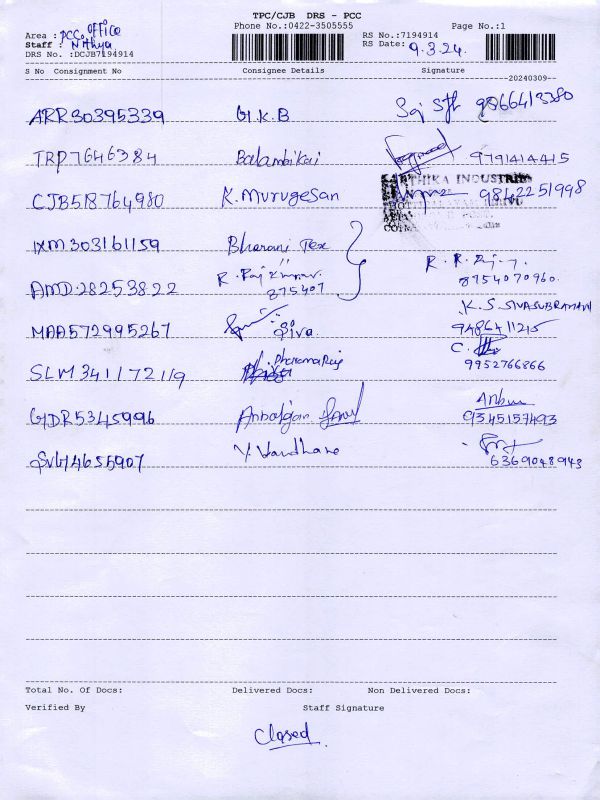 TPC/CJB DRS - PCC
Phone No.:0422-3505555 Page No.:1
Area : PCC office
Staff : Nithya
DRS No. :DCJB7194914
RS No.:7194914
RS Date: 9.3.24.
S No Consignment No Consignee Details Signature
20240309
ARR30395339 G.K.B
TRP7646384 Balambikai 9791414415
KARTHIKA INDUSTRIES
CJB518764980 K. Murugesan 9842251998
IXM303161159 Bharani Tex
AMD28253822 R. Rajkumar. 875407 8754070960.
K.S. SIVASUBRAMANI
MAA572995267 Siva. 9486411215
SLM341172119 9952766866
GDR5345996 Anbalgan Anbu 9345157493
SVG4655907 Y. Vandhana 6369048943
Total No. Of Docs: Delivered Docs: Non Delivered Docs:
Verified By Staff Signature
Closed